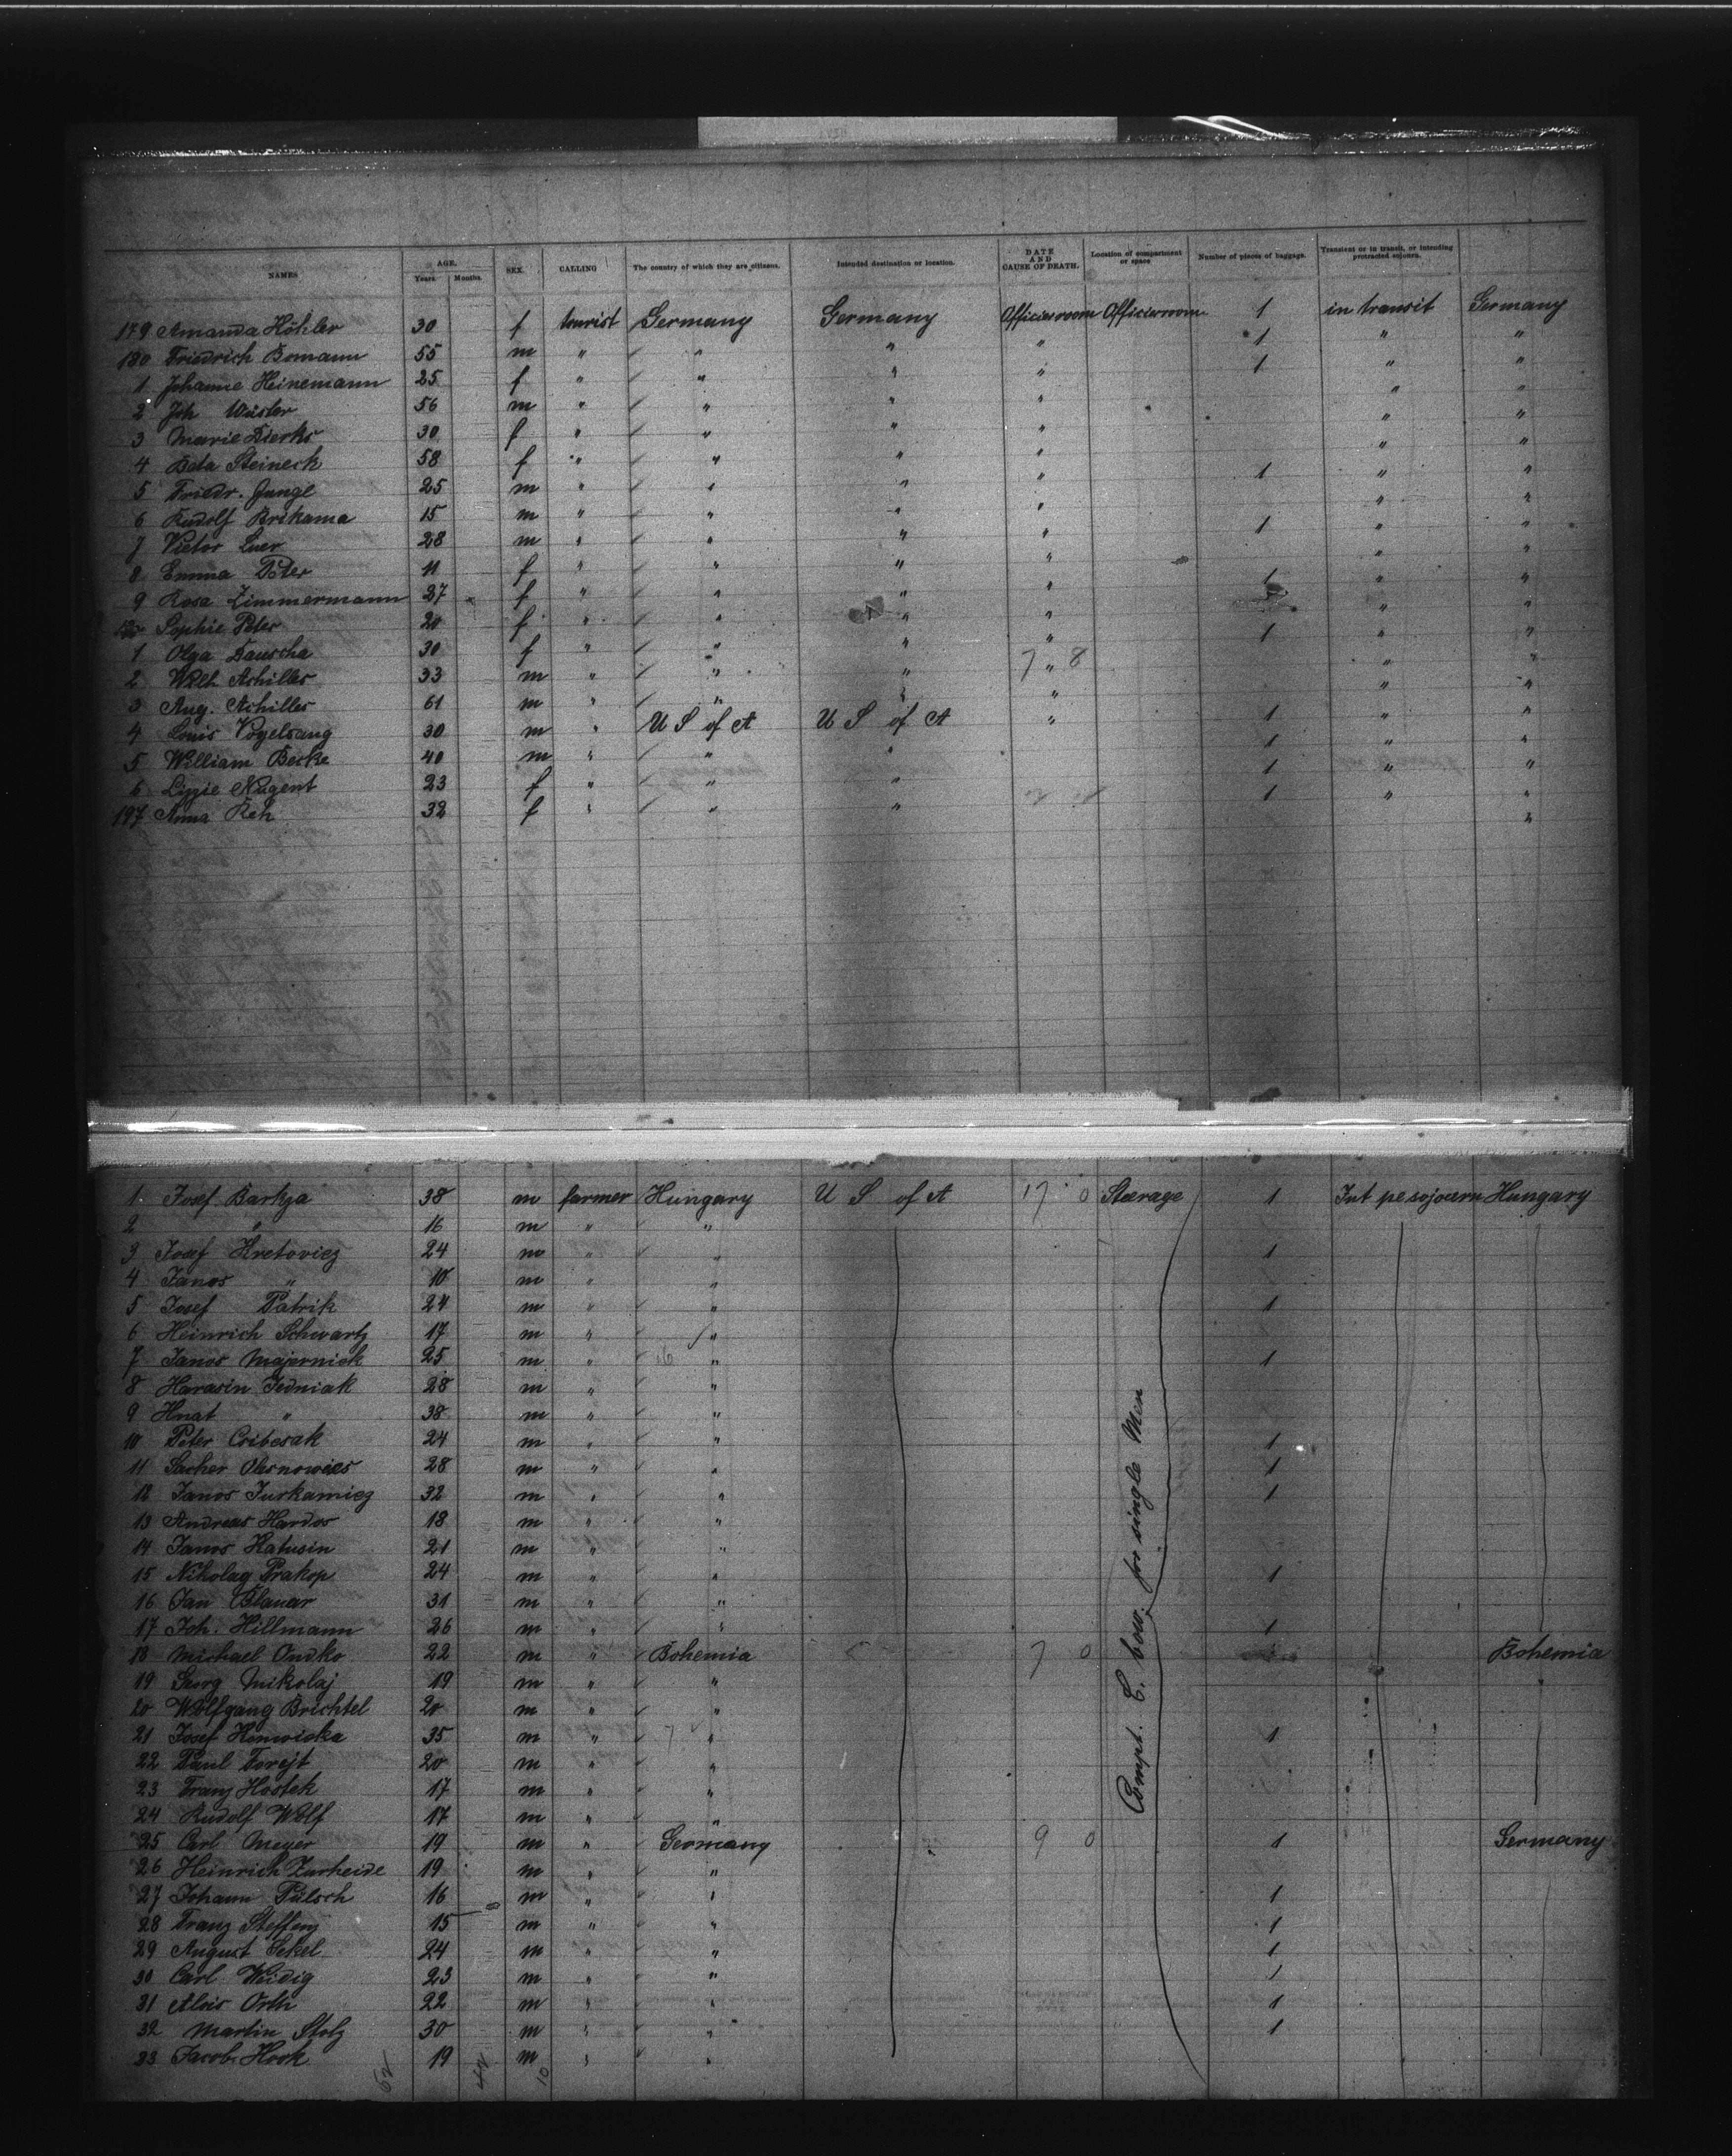 NAMES AGE. Years. Months. SEX. CALLING The country of which they are citizens. Intended destination or location. DATE AND CAUSE OF DEATH. Location of compartment or space Number of pieces of baggage. Transient or in transit, or intending protracted sojourn.
179 Amanda Höhler 30 f tourist Germany Germany Officiersroom Officiersroom 1 in transit Germany
180 Friedrich Bomann 55 m " " " " 1 " "
1 Johanne Heinemann 25 f " " " " 1 " "
2 Joh Wüster 56 m " " " " " "
3 Marie Dierks 30 f " " " " " "
4 Beta Steineck 58 f " " " " " "
5 Friedr. Junge 25 m " " " " 1 " "
6 Rudolf Brikama 15 m " " " " " "
7 Victor Luer 28 m " " " " 1 " "
8 Emma Peter 11 f " " " " " "
9 Rosa Zimmermann 27 f " " " " 1 " "
Sophie Peter 20 f " " " " " "
1 Olga Bauscha 30 f " " " " 1 " "
2 Wilh Achilles 33 m " " " 7 " 8 " "
3 Aug. Achilles 61 m " " " " " "
4 Louis Vogelsang 30 m " U S of A U S of A " 1 " "
5 William Becke 40 m " " " 1 " "
6 Lizzie Nugent 23 f " " " 1 " "
197 Anna Reh 32 f " " " 1 " "
1 Josef Barhja 38 m farmer Hungary U S of A 17 0 Steerage 1 Int pe sojourn Hungary
2 " 16 m " "
3 Josef Hretovicz 24 m " " 1
4 Janos " 10 m " "
5 Josef Patrik 24 m " " 1
6 Heinrich Schwartz 17 m " "
7 Janos Majernick 25 m " " 1
8 Harasin Jedniak 28 m " "
9 Hnat " 38 m " "
10 Peter Cribesak 24 m " " 1
11 Sacher Olesnowics 28 m " " 1
12 Janos Jurkamicz 32 m " " 1
13 Andreas Hardos 18 m " "
14 Janos Katusin 21 m " "
15 Nikolag Prakop 24 m " " 1
16 Jan Blanar 31 m " "
17 Joh. Hillmann 26 m " " 1
18 Michael Ondko 22 m " Bohemia 7 0 Bohemia
19 Georg Mikolaj 19 m " "
20 Wolfgang Brichtel 20 m " "
21 Josef Honwicka 35 m " " 1
22 Paul Forejt 20 m " "
23 Franz Hostek 17 m " "
24 Rudolf Wolf 17 m " "
25 Carl Meyer 19 m " Germany 9 0 1 Germany
26 Heinrich Zurheide 19 m " "
27 Johann Pülsch 16 m " " 1
28 Franz Steffens 15 m " " 1
29 August Sekel 24 m " " 1
30 Carl Weidig 23 m " " 1
31 Alois Orth 22 m " " 1
32 Martin Stolz 30 m " " 1
33 Jacob Hook 19 m " "
Compt. C. for single Men
62 42 10